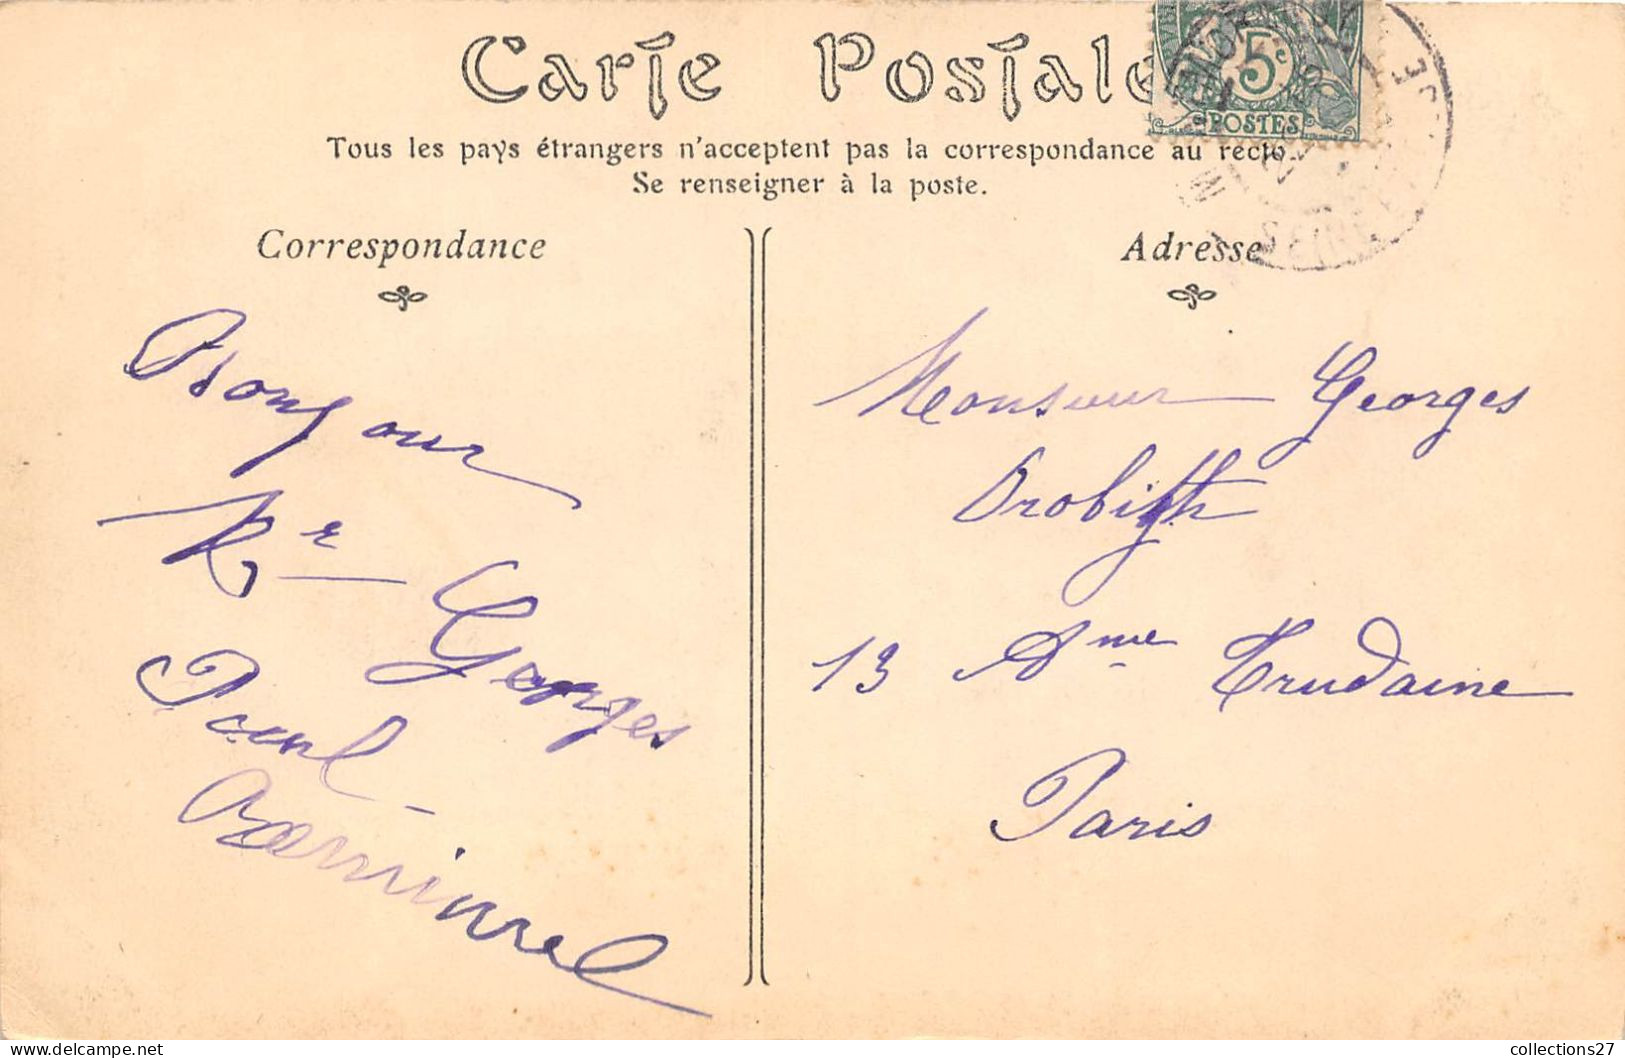 Carte Postale
5c
POSTES
Tous les pays étrangers n'acceptent pas la correspondance au recto.
Se renseigner à la poste.
Correspondance
Bonjour
Mr Georges
Paul
Adresse
Monsieur Georges
13 Ame Trudaine
Paris
collections27